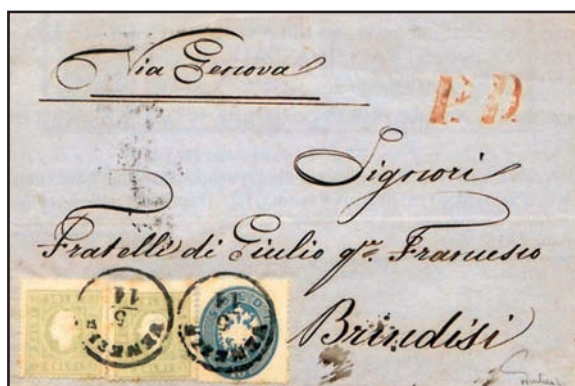 Via Genova
P.D.
Signori
Fratelli di Giulio qm. Francesco
Brindisi
VENEZIA
14
5
VENEZIA
14
5